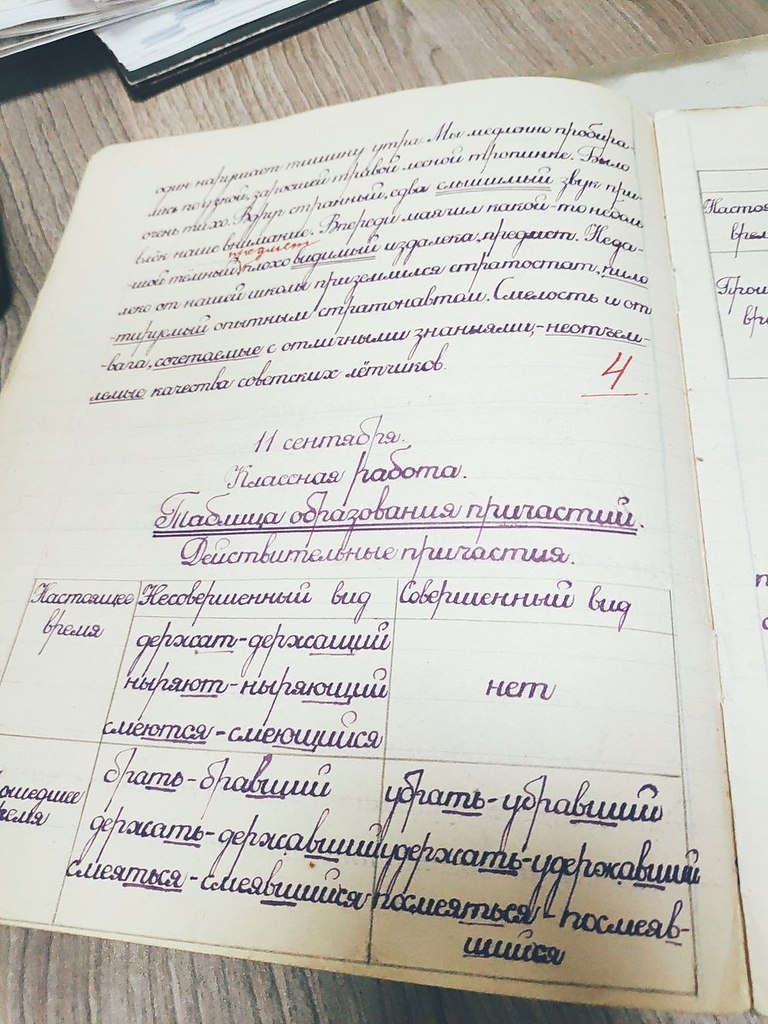 один нарушает тишину утра. Мы медленно пробира-
лись по узкой, заросшей травой лесной тропинке. Было
очень тихо. Вдруг странный, едва слышимый звук при-
влёк наше внимание. Впереди маячил какой-то неболь
предмет
-шой тёмный, плохо видимый издалека, предмет. Неда-
леко от нашей школы приземлился стратостат, пило
-тируемый опытным стратонавтом. Смелость и от
-вага, сочетаемые с отличными знаниями,-неотъем-
лемые качества советских лётчиков.
4
11 сентября.
Классная работа.
Таблица образования причастий.
Действительные причастия.
Настоящее время
Несовершенный вид
Совершенный вид
держат-держащий
ныряют-ныряющий
смеются-смеющийся
нет
ошедшее
ремя
брать-бравший
держать-державший
смеяться-смеявшийся
убрать-убравший
удержать-удержавший
посмеяться-посмеяв-
шийся
Настоя
врем
Прош
вр